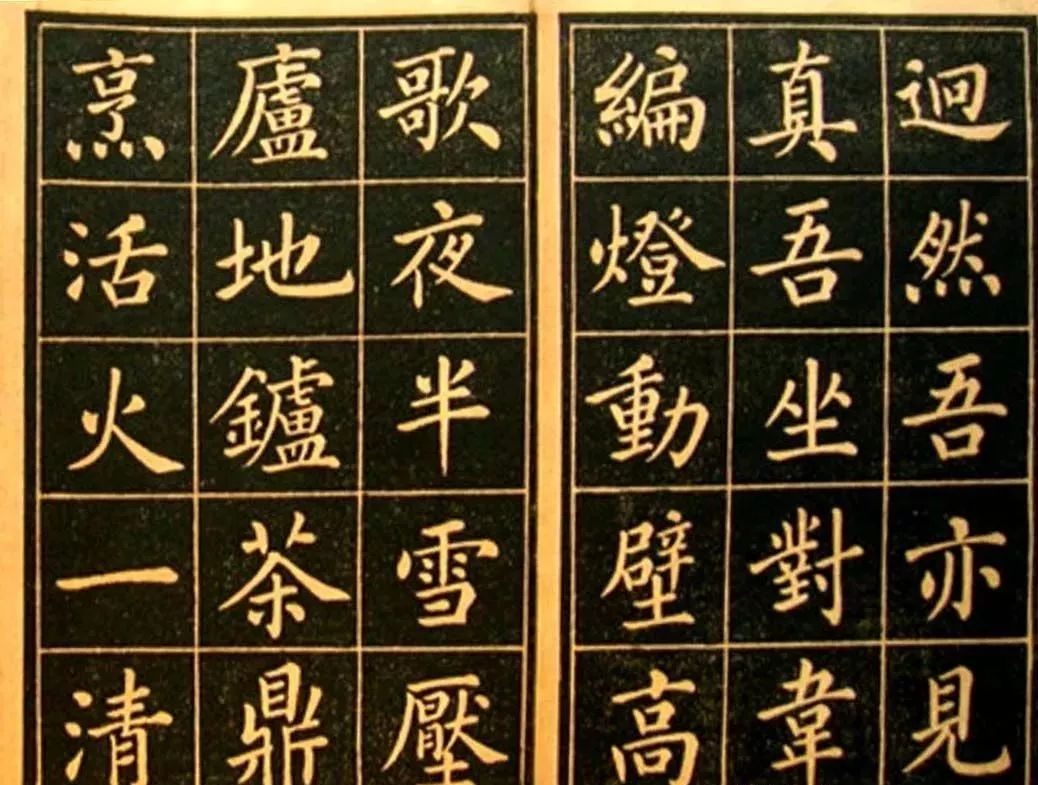 迥然吾亦見
真吾坐對韋
編燈動壁高
歌夜半雪壓
廬地鑪茶鼎
烹活火一清